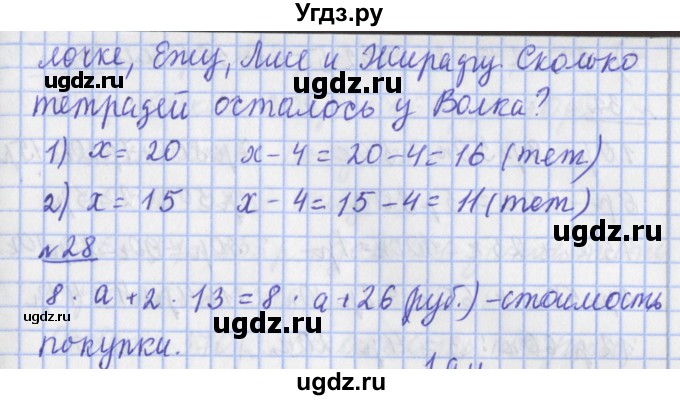 Угдз.ру
лочке, Ежу, Лисе и Жирафу. Сколько
ugdz.ru ugdz.ru
тетрадей осталось у Волка?
ugdz.ru
1) x = 20 x - 4 = 20 - 4 = 16 (тет)
ugdz.ru ugdz.ru
2) x = 15 x - 4 = 15 - 4 = 11 (тет)
ugdz.ru
№28
8 · a + 2 · 13 = 8 · a + 26 (руб.) - стоимость
ugdz.ru ugdz.ru
покупки.
ugdz.ru